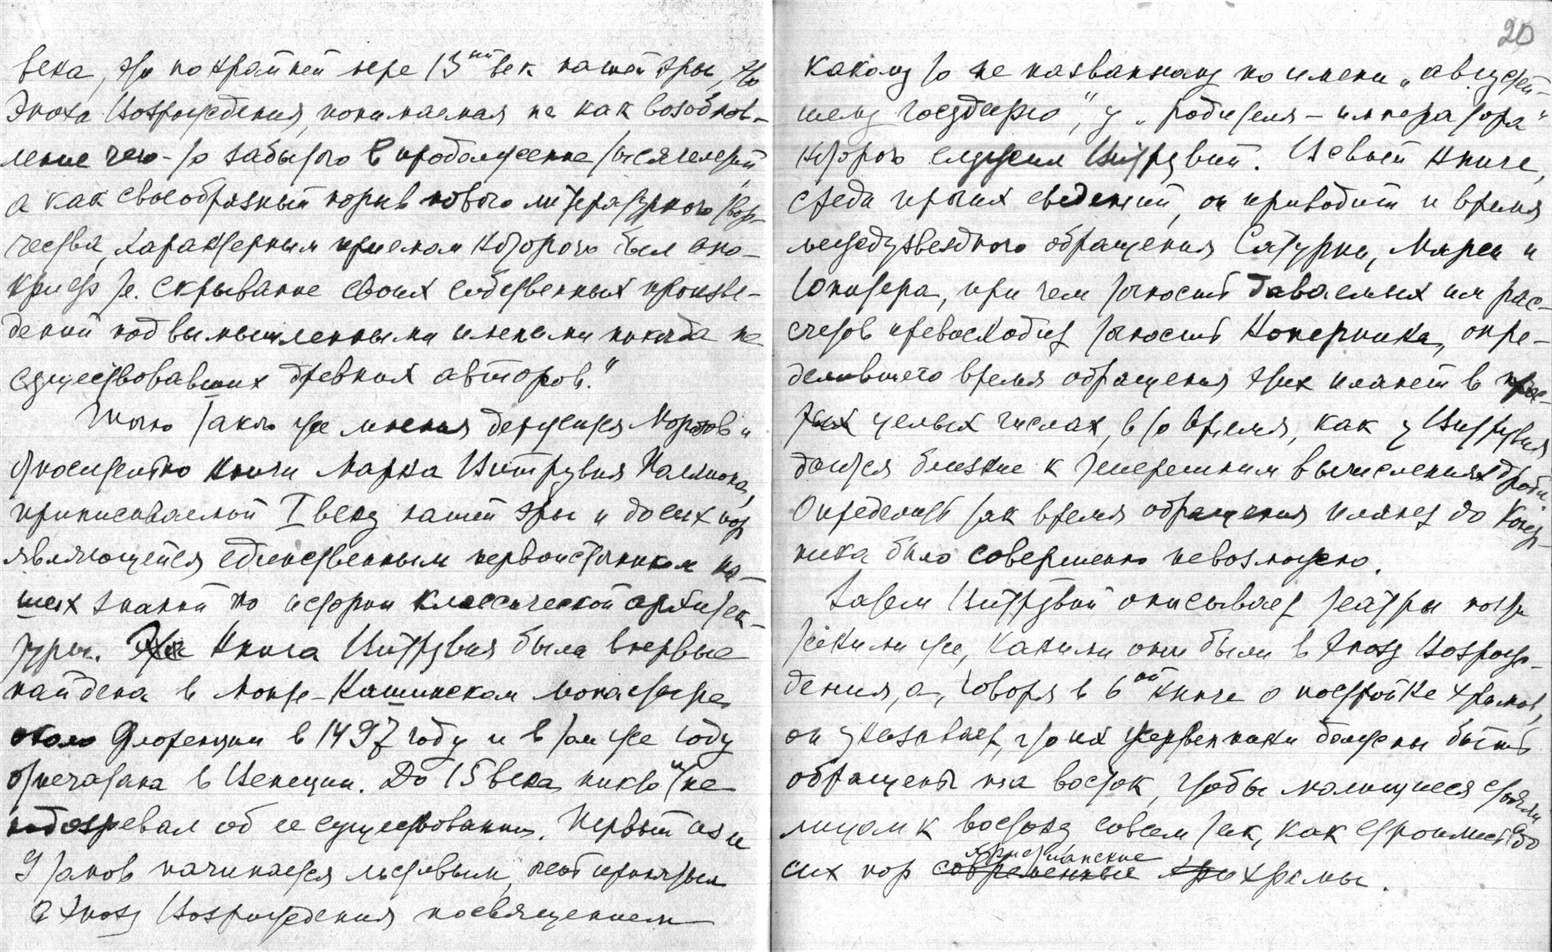 века, это по крайней мере 15ый век нашей эры, это
Эпоха Возрождения, понимаемая не как возобнов-
ление чего-то забытого в продолжение тысячелетий,
а как своеобразный порыв нового литературного твор-
чества, характерным приемом которого был апо-
криф т.е. скрывание своих собственных произве-
дений под вымышленными именами никогда не
существовавших древних авторов."
Точно такого же мнения держится Морозов и
относительно книги Марка Витрувия Поллиона,
приписываемой I веку нашей эры и до сих пор
являющейся единственным первоисточником на-
ших знаний по истории классической архитек-
туры. Книга Витрувия была впервые
найдена в Монте-Кассинском монастыре
около Флоренции в 1497 году и в том же году
отпечатана в Венеции. До 15 века никто и не
подозревал об ее существовании. Первый из ее
томов начинается льстивым, по
в эпоху Возрождения посвящением
20
какому то не названному по имени „августей-
шему государю", у „родителя - императора"
которого служил Витрувий. В своей книге,
среди прочих сведений, он приводит и время
междузвездного обращения Сатурна, Марса и
Юпитера, при чем точность даваемых им рас-
счетов превосходит точность Коперника, опре-
делившего время обращения этих планет в прос-
тых целых числах, в то время, как у Витрувия
даются близкие к теперешним вычислениям дроби.
Определить так время обращения планет до Копер-
ника было совершенно невозможно.
Затем Витрувий описывает театры почти
такими же, какими они были в Эпоху Возрож-
дения, а, говоря в 6ой книге о постройке храмов,
он указывает, что их жертвенники должны быть
обращены на восток, чтобы молящиеся стояли
лицом к востоку совсем так, как строились до
христианские
сих пор современные храмы.